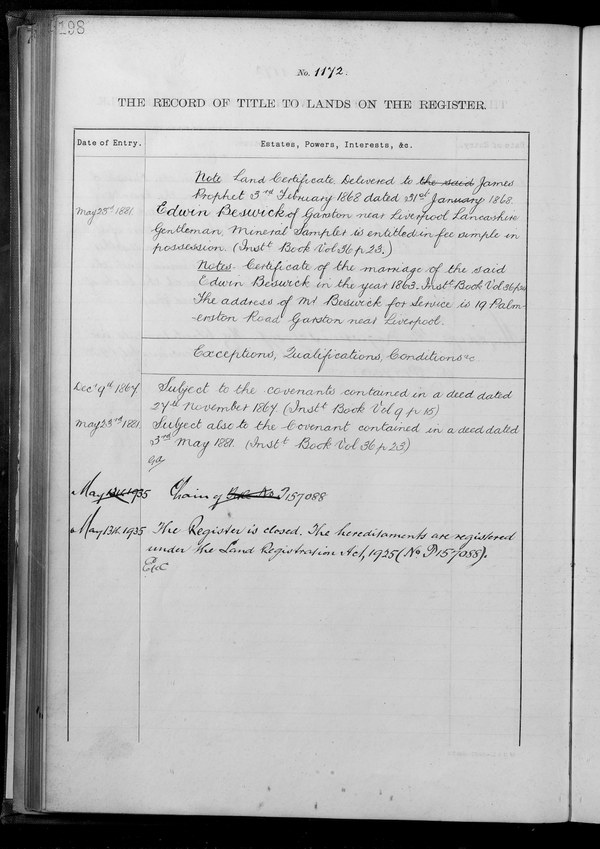 198
No. 1172.
THE RECORD OF TITLE TO LANDS ON THE REGISTER.
Date of Entry.
Estates, Powers, Interests, &c.
Note Land Certificate Delivered to the said James
Prophet 3rd February 1868 dated 31st January 1868.
May 23rd 1881
Edwin Beswick of Garston near Liverpool Lancashire
Gentleman Mineral Sampler is entitled in fee simple in
possession. (Instt Book Vol 36 p 23.)
Notes. Certificate of the marriage of the said
Edwin Beswick in the year 1863. Instt Book Vol 36 p
The address of Mr Beswick for Service is 19 Palm-
-erston Road Garston near Liverpool.
Exceptions, Qualifications, Conditions &c
Decr 9th 1864
Subject to the covenants contained in a deed dated
24th November 1864. (Instt Book Vol 9 p 15)
May 23rd 1881
Subject also to the Covenant contained in a deed dated
3rd May 1881. (Instt Book Vol 36 p 23)
May 13th 1935
P157088
May 13th 1935
The Register is closed. The hereditaments are registered
under the Land Registration Act, 1925 (No P157088).